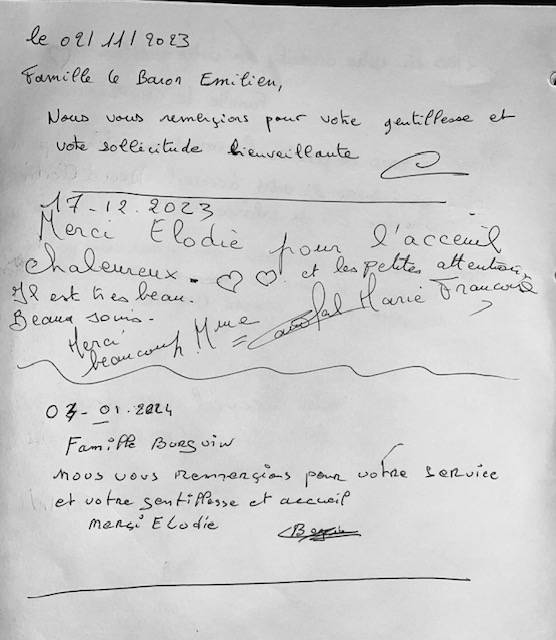 le 02/11/2023
Famille le Baron Emilien,
Nous vous remerçions pour votre gentillesse et
votre sollicitude bienveillante
17-12.2023
Merci Elodie pour l'acceuil
chaleureux. ♡ ♡ et les petites attention,
Il est très beau.
Beaux soins.
Marie Françoise
Merci
beaucoup. Mme
07-01.2024
Famille Burguin
nous vous remmerçions pour votre service
et votre gentillesse et accueil
merçi Elodie